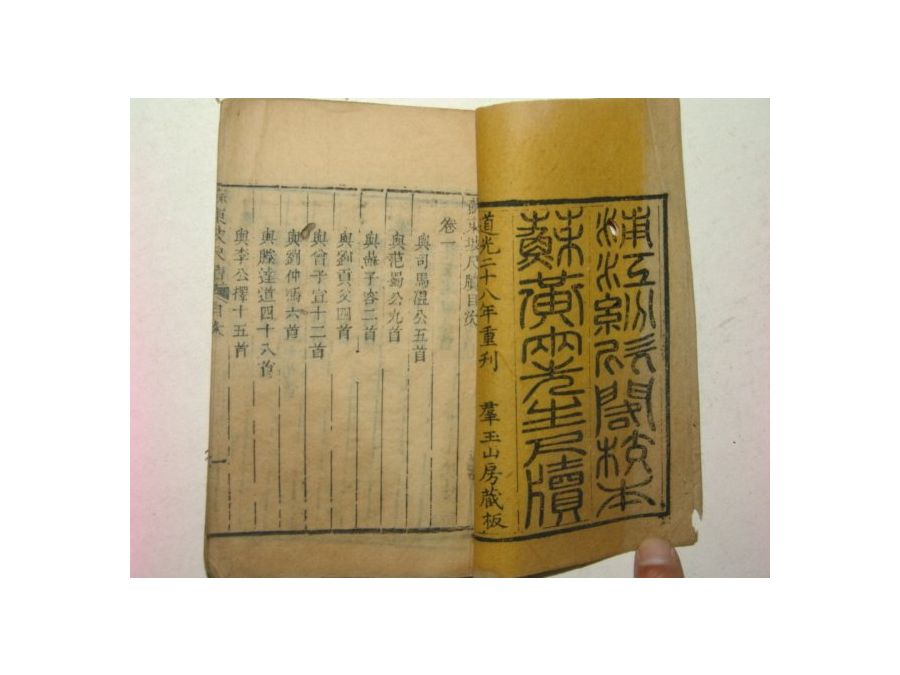 閣校本
蘇黃兩先生尺牘
道光二十八年重刊 羣玉山房藏板
蘇東坡尺牘目次
卷一
與司馬溫公五首
與范蜀公九首
與蘇子容二首
與劉貢父四首
與曾子宣十二首
與劉仲馮六首
與滕達道四十八首
與李公擇十五首
蘇東坡尺牘 目次 一